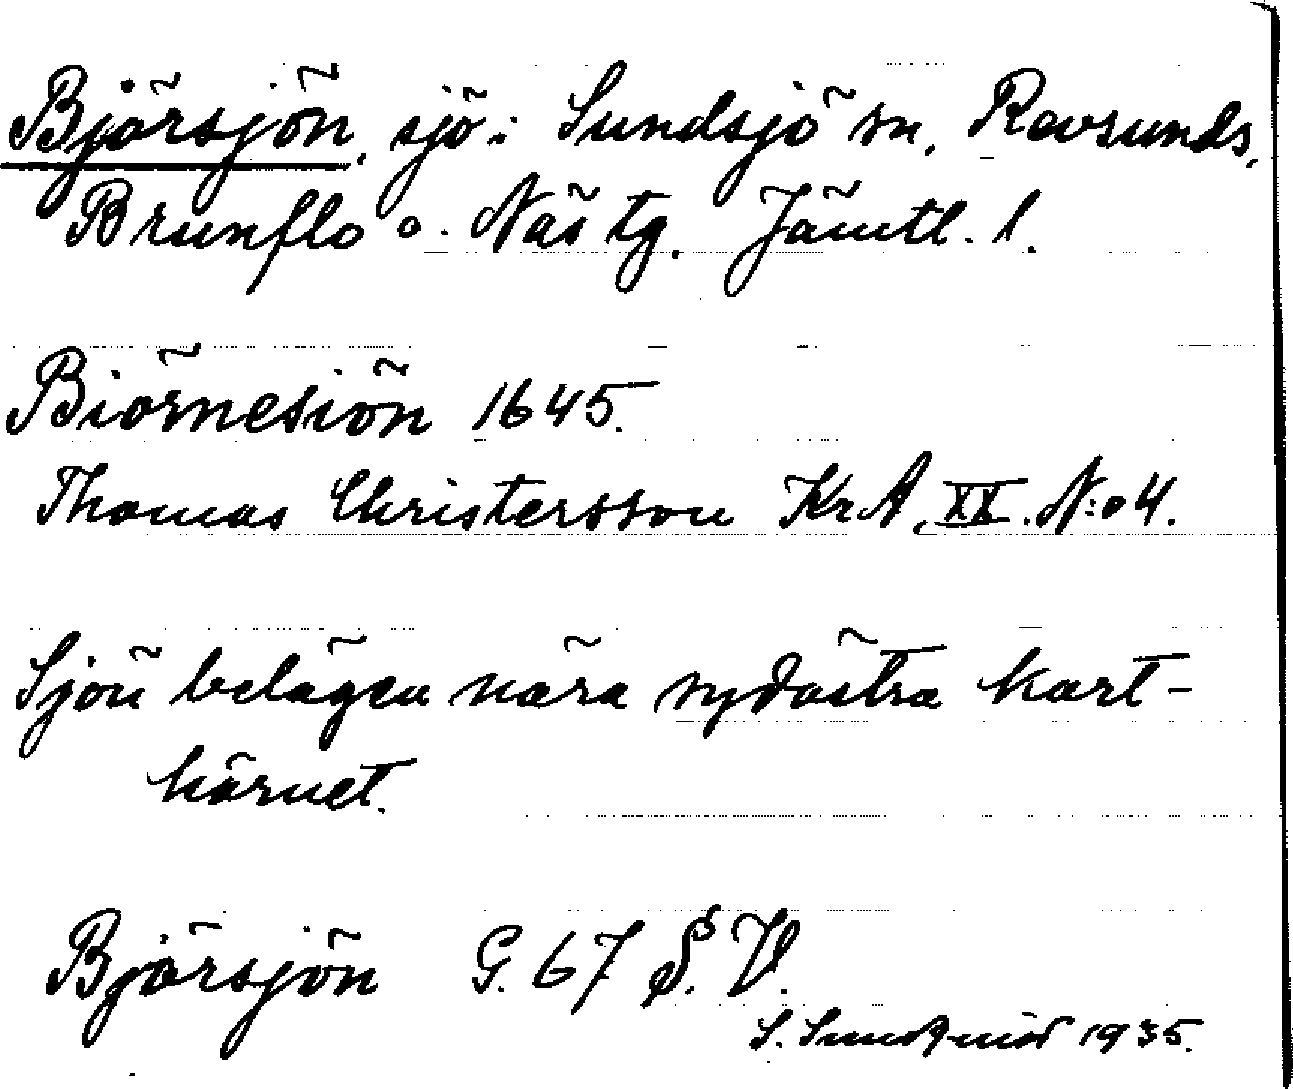 Björsjön, sjö i Sundsjö sn, Revsunds,
Brunflo o. Näs tg. Jämtl. l.
Biörnesiön 1645.
Thomas Christersson Kr A, XX. N:o 4.
Sjön belägen nära sydöstra kart-
hörnet.
Björsjön G. 67 S. V.
S. Sundquist 1935.